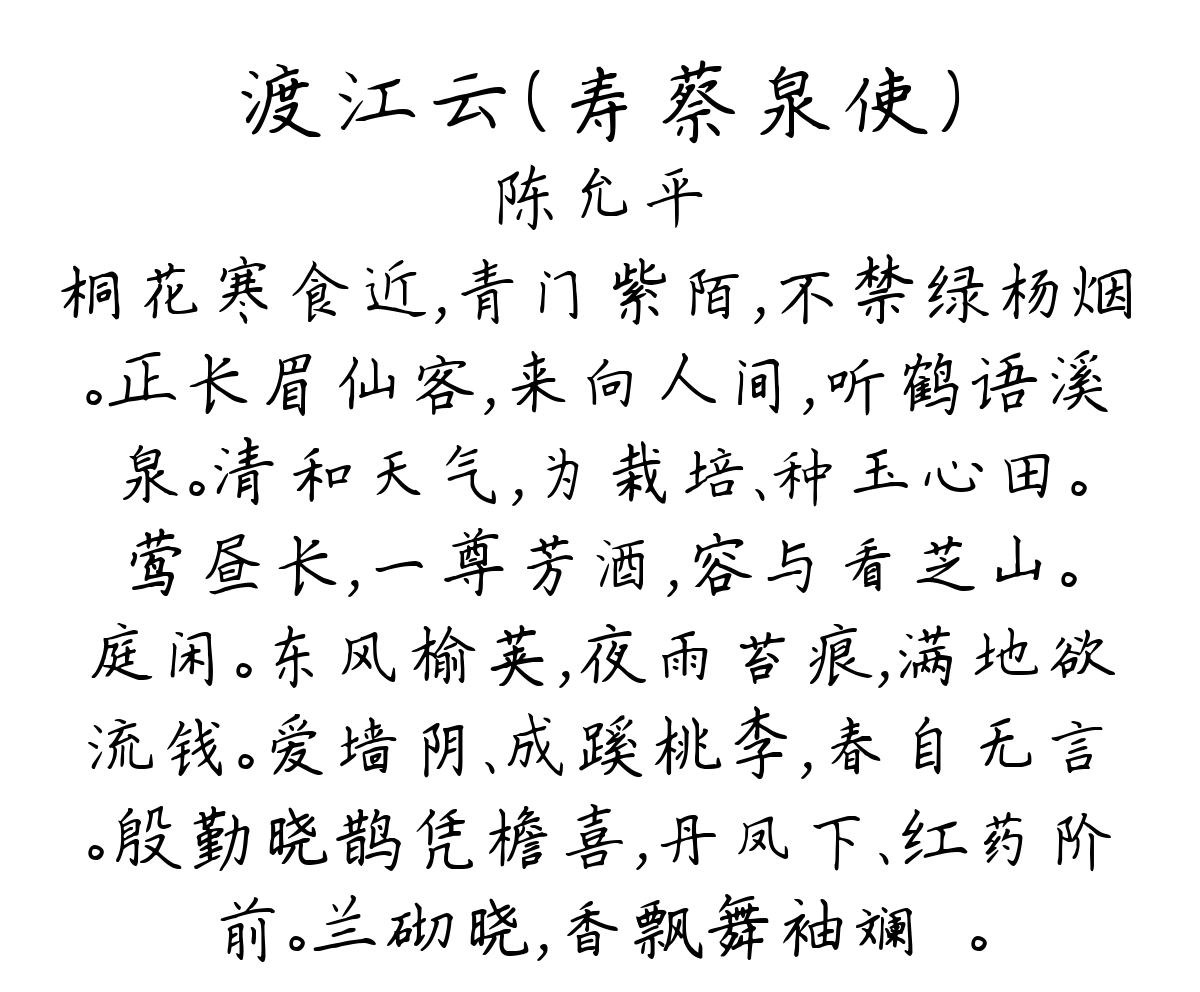 渡江云(寿蔡泉使)
陈允平
桐花寒食近,青门紫陌,不禁绿杨烟
。正长眉仙客,来向人间,听鹤语溪
泉。清和天气,为栽培、种玉心田。
莺昼长,一尊芳酒,容与看芝山。
庭闲。东风榆荚,夜雨苔痕,满地欲
流钱。爱墙阴、成蹊桃李,春自无言
。殷勤晓鹊凭檐喜,丹凤下、红药阶
前。兰砌晓,香飘舞袖斓 。